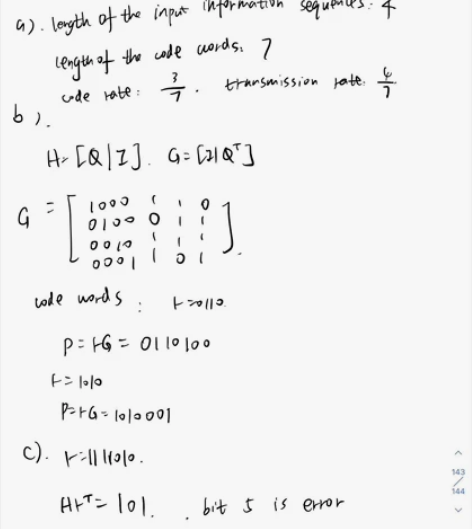 a). length of the input information sequences: 4
length of the code words: 7
code rate: 3/7. transmission rate: 4/7
b).
H=[Q|I]. G=[I|Qᵀ]
G = [1000 1 1 0
0100 0 1 1
0010 1 1 1
0001 1 0 1].
code words: r=0110.
P=rG= 0110100
r=1010
P=rG=1010001
c). r=1111010.
Hrᵀ=101. . bit 5 is error
143
144